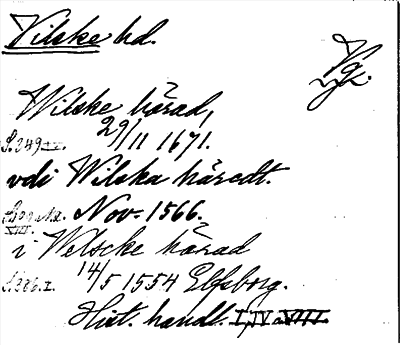 Vilske hd.
Vg.
Wilske härad,
S. 249 29/11 1671.
vdi Wilska häredt.
Nov. 1566.
VIII.
i Welscke härad
I. 14/5 1554 Elfsborg.
Hist. handl. I, IV o. VIII.